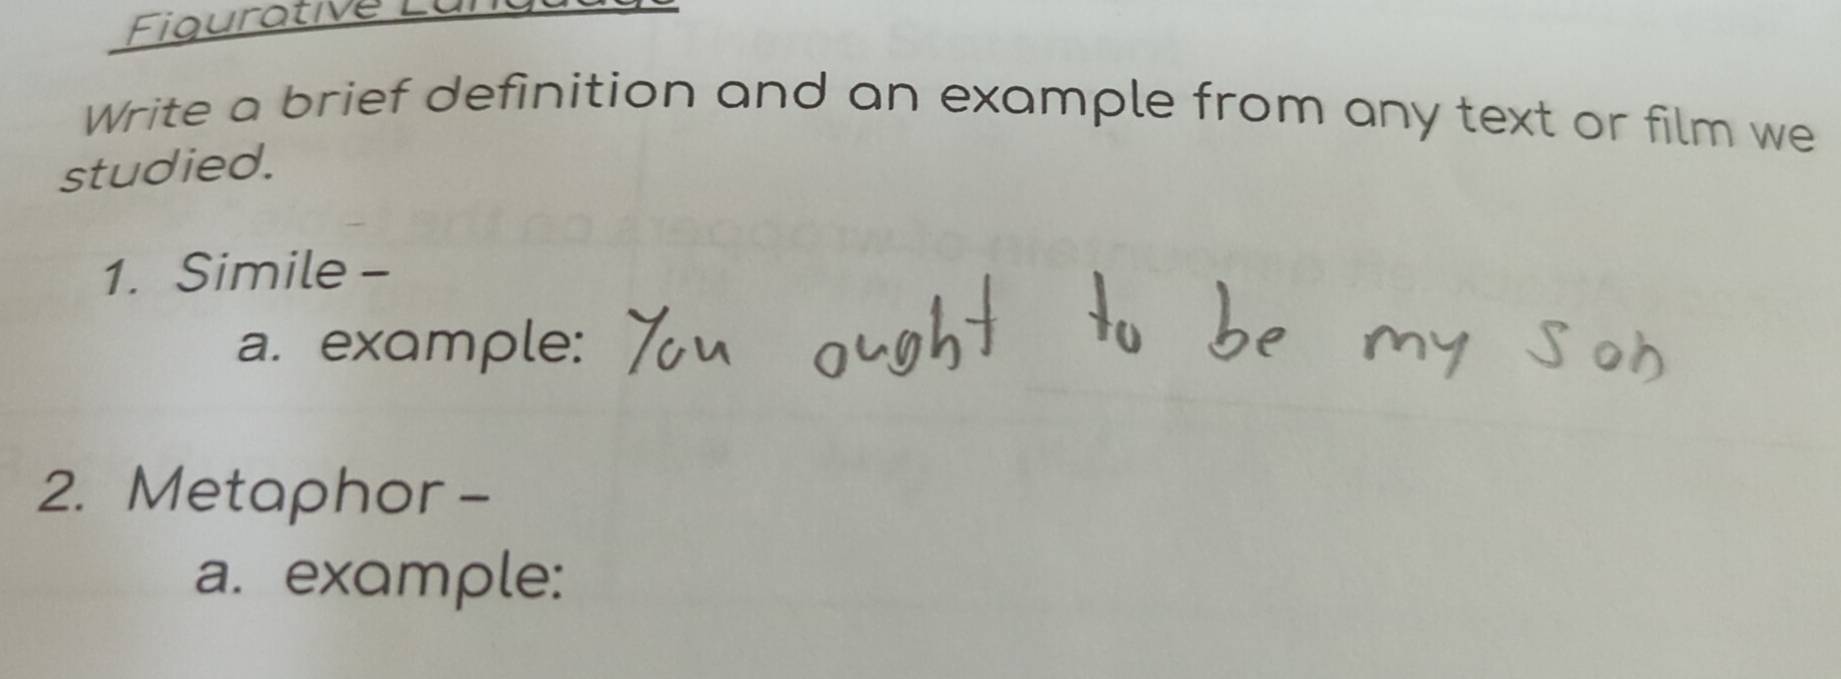 Figurative Language
Write a brief definition and an example from any text or film we
studied.
1. Simile -
a. example: You ought to be my son
2. Metaphor -
a. example: